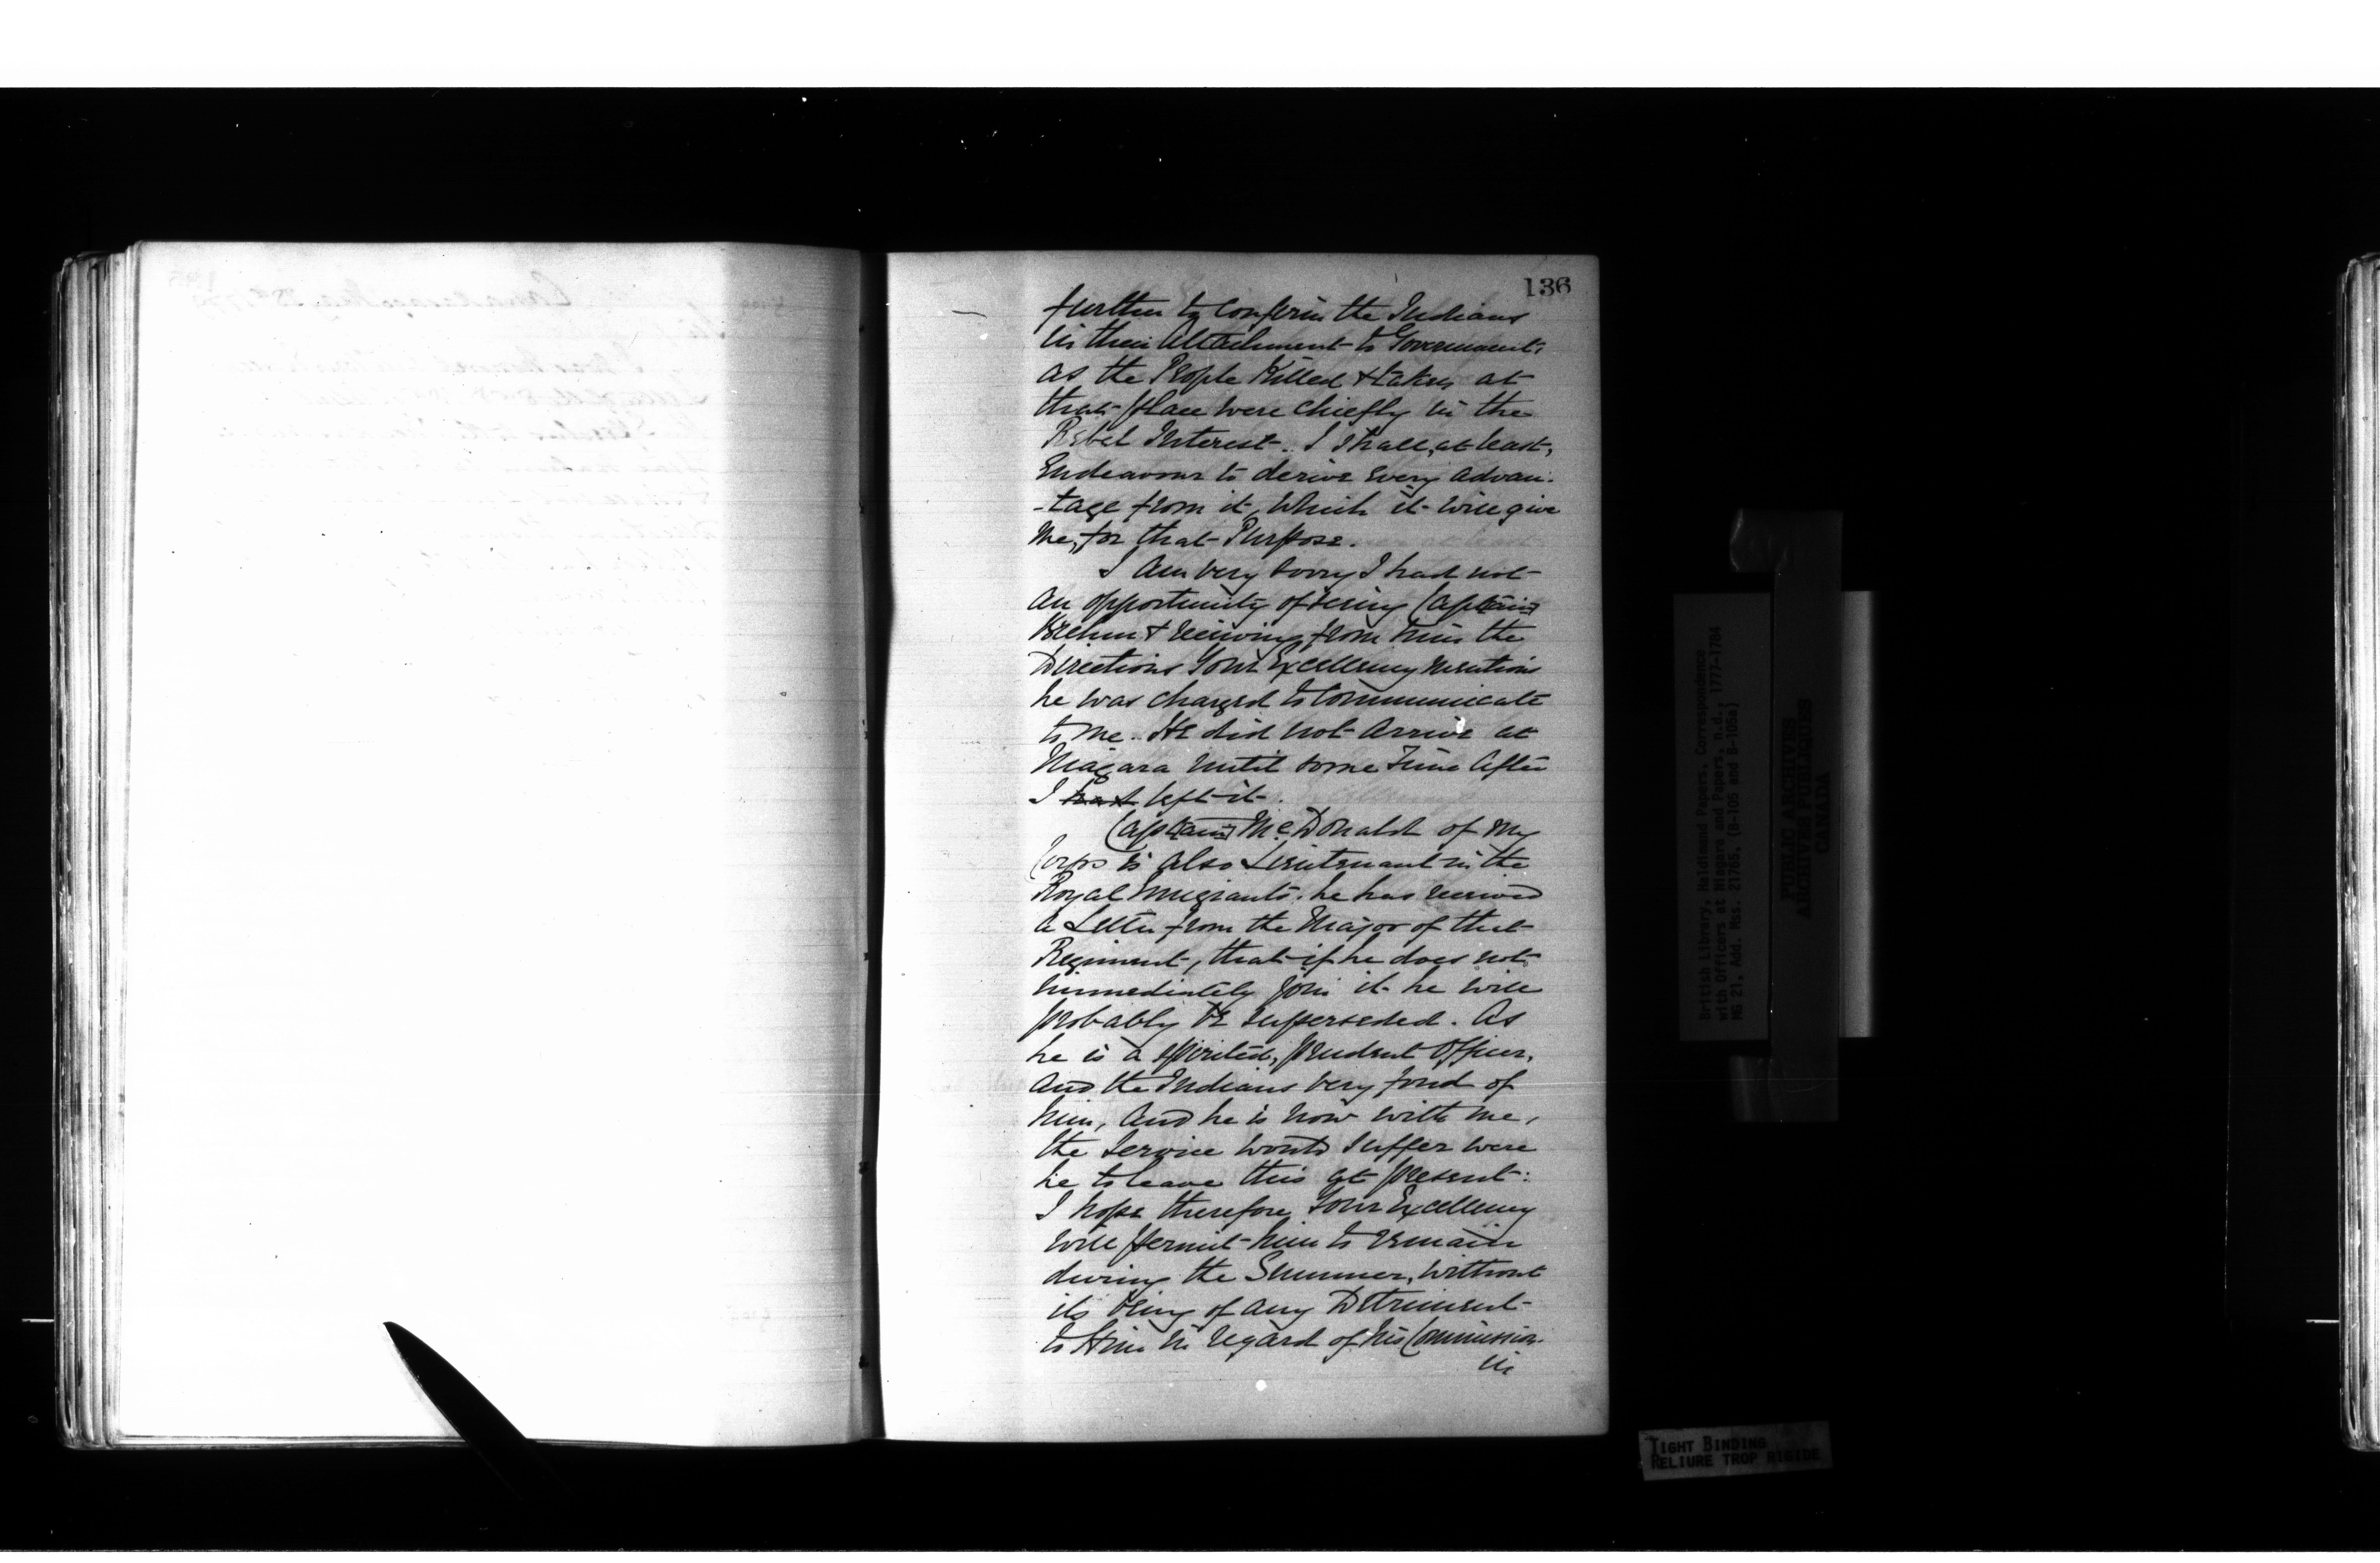 136
further to confirm the Indians
in their Attachment to Government,
as the People Killed & taken at
that place were chiefly in the
Rebel Interest. I shall, at least,
Endeavour to derive every advan-
-tage from it, which it will give
me, for that Purpose.
I am very sorry I had not
an opportunity of seeing Captain
Brehm & receiving from him the
Directions Your Excellency mentions
he was charged to Communicate
to me. He did not Arrive at
Niagara until some Time After
I had left it.
Captain McDonald of my
Corps is also Lieutenant in the
Royal Emigrants. he has received
a Letter from the Major of that
Regiment, that if he does not
immediately join it he will
probably be superseded. As
he is a spirited, prudent Officer,
and the Indians very fond of
him, and he is now with me,
the Service would suffer were
he to leave this at present:
I hope therefore Your Excellency
will permit him to remain
during the Summer, without
its being of any Detriment
to Him in regard of his Commission
in
British Library, Haldimand Papers. Correspondence
with Officers at Niagara and Papers, n.d., 1777-1784
MG 21, Add. Mss. 21765, (B-105 and B-105a)
PUBLIC ARCHIVES
ARCHIVES PUBLIQUES
CANADA
TIGHT BINDING
RELIURE TROP RIGIDE